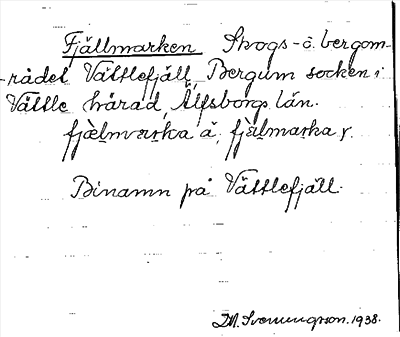 Fjällmarken Skogs- o. bergom-
-rådet Vättlefjäll, Bergum socken i
Vättle härad, Älfsborgs län.
fjælmarka å, fjælmarka,
Binamn på Vättlefjäll.
D.M. Svenungsson. 1938.